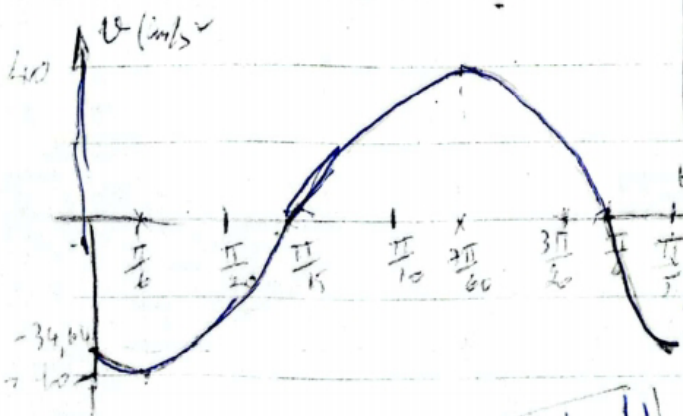 v (in/s
40
π/6 π/20 π/15 π/10 7π/60 3π/20 π/6 π/5
-34,64
-40